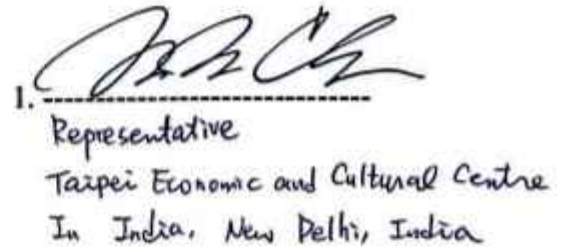 1. ------------------------------
Representative
Taipei Economic and Cultural Centre
In India, New Delhi, India